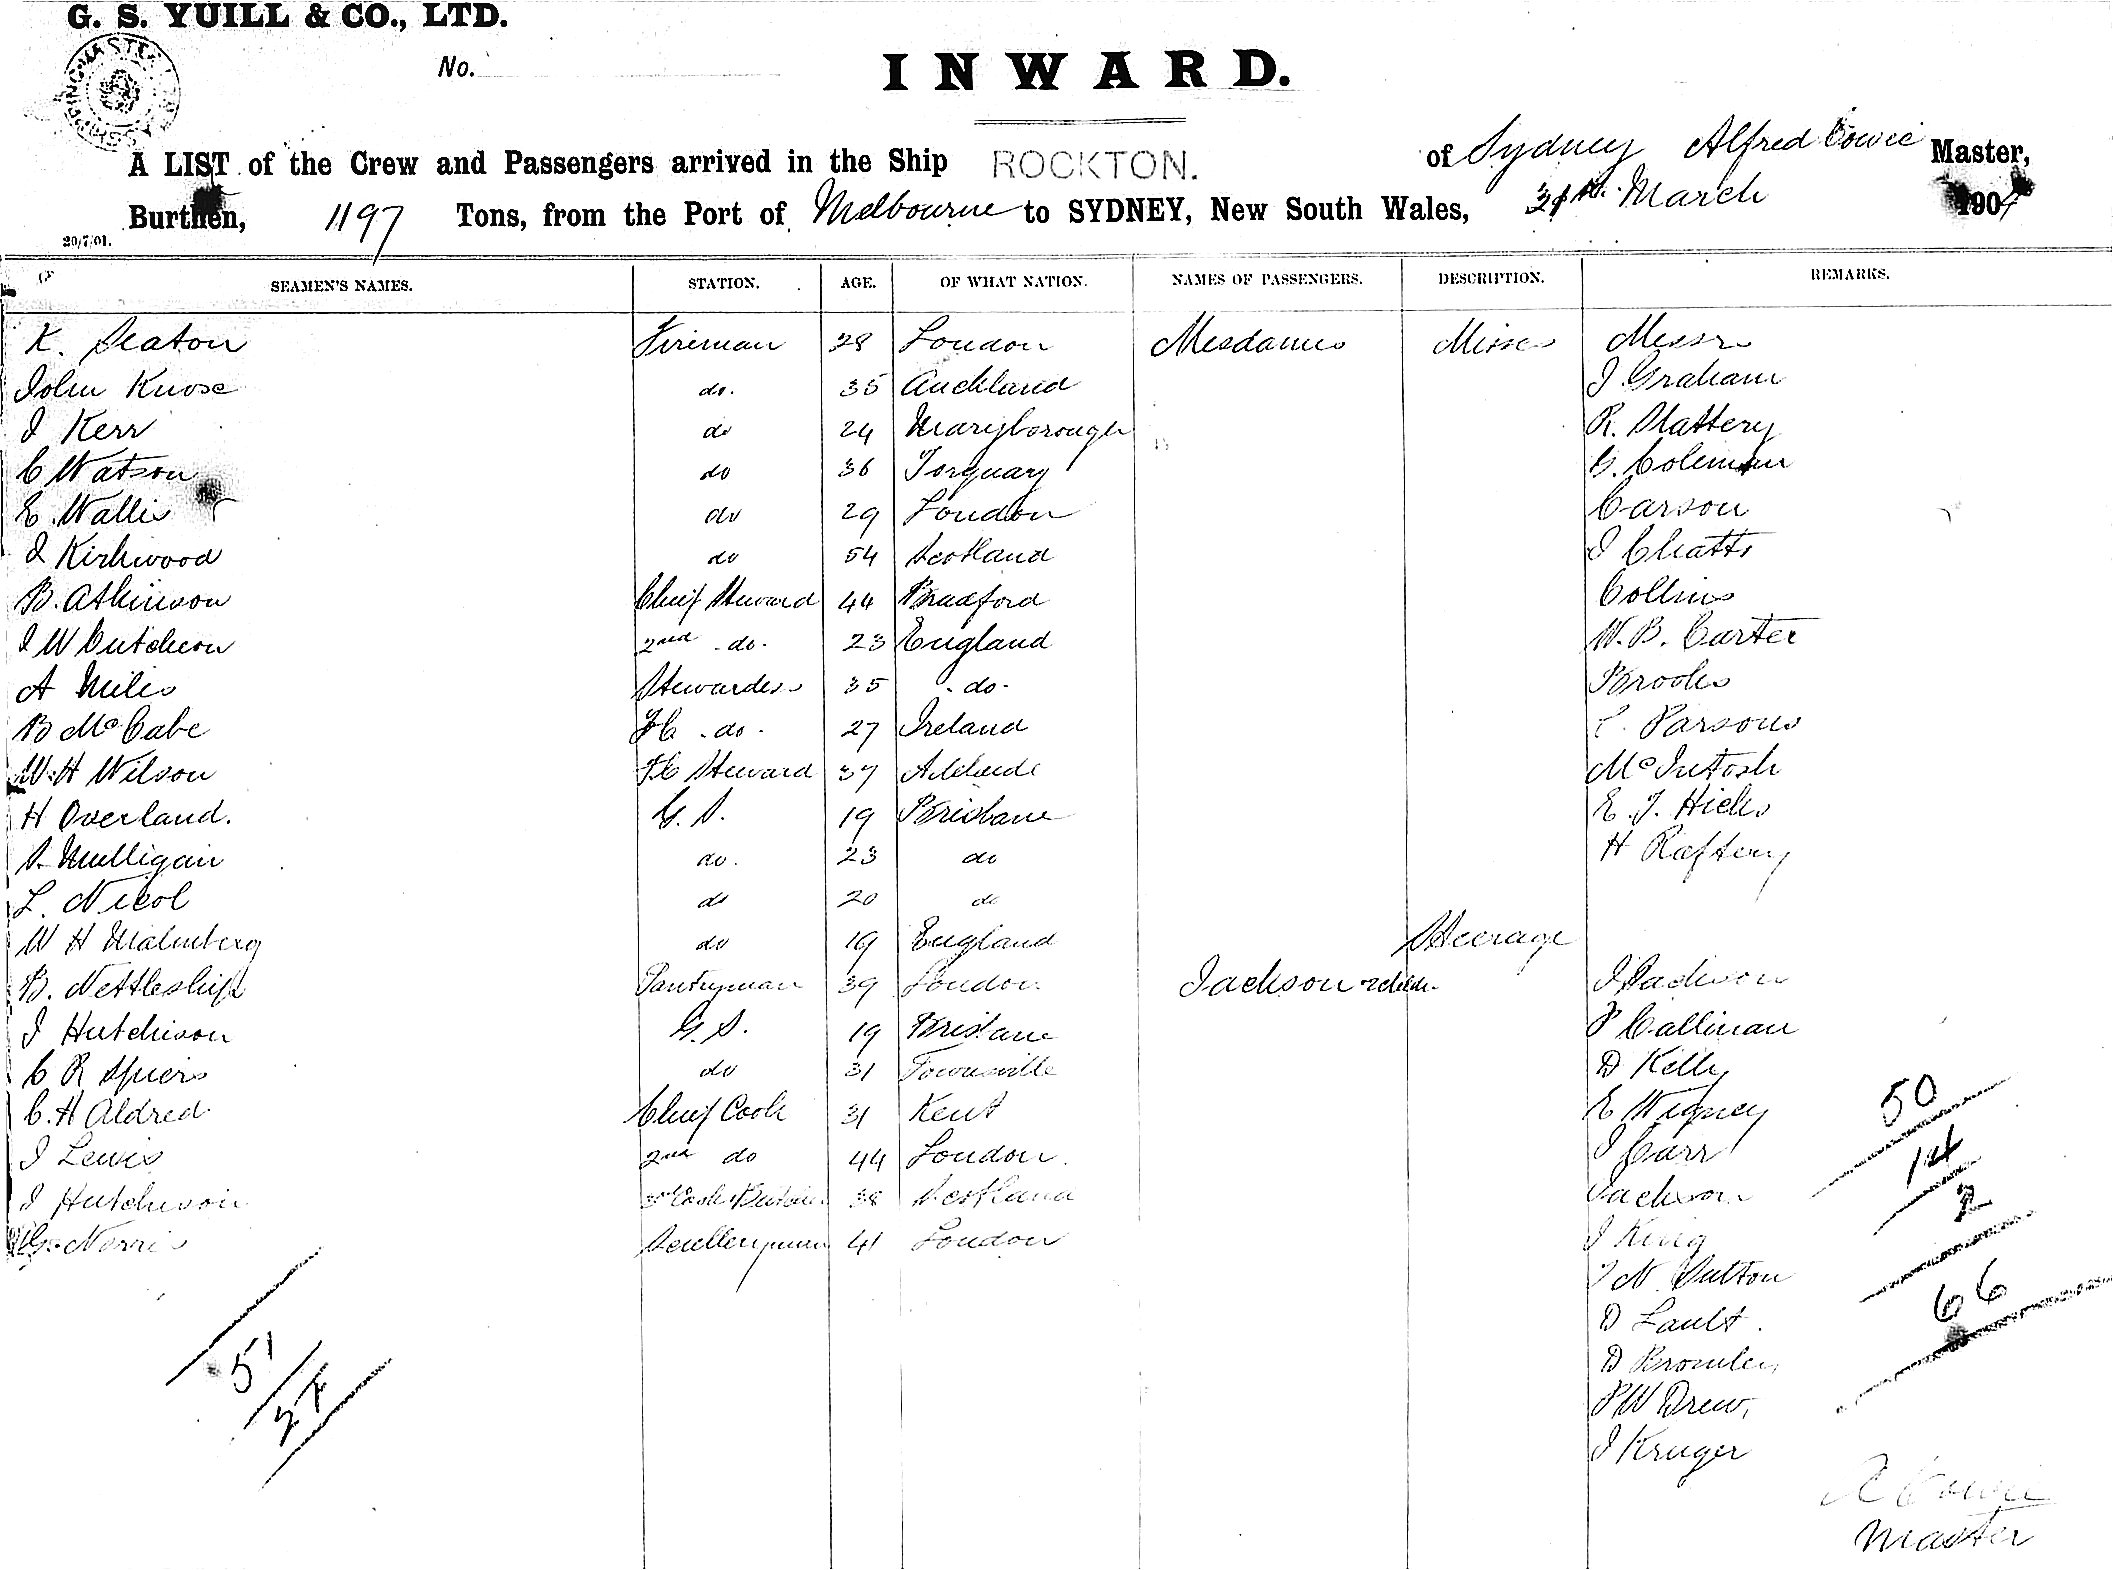 G. S. YUILL & CO., LTD.
No.
INWARD.
A LIST of the Crew and Passengers arrived in the Ship ROCKTON. of Sydney Alfred Cowie Master,
Burthen, 1197 Tons, from the Port of Melbourne to SYDNEY, New South Wales, March 1904
20/7/01.
SEAMEN'S NAMES. STATION. AGE. OF WHAT NATION. NAMES OF PASSENGERS. DESCRIPTION. REMARKS.
K. Seaton Fireman 28 London Mesdames Misses Messrs
John Knose do. 35 Auckland J Graham
J Kerr do 24 Maryborough R. Slattery
C Watson do 36 Torquary G. Coleman
E. Wallis do 29 London Carson
J Kirkwood do 54 Scotland J Chatts
B. Atkinson Chief Steward 44 Bradford Collins
J W Cutcheon 2nd do. 23 England W. B. Carter
A Miles Stewardess 35 do. Brooks
B McCabe do. 27 Ireland Parsons
W. H Wilson F.C Steward 37 Adelaide McIntosh
H Overland. G. S. 19 Brisbane E. J. Hicks
S. Mulligan do. 23 do H Raftery
L. Nicol do 20 do
W H Malmberg do 19 England Steerage
B. Nettleship Pantryman 39 London Jackson J Jackson
J Hutchison G. S. 19 Brisbane P Callinan
C R Spiers do 31 Townsville D Kelly
C. H Aldred Chief Cook 31 Kent E Wigney
J Lewis 2nd do 44 London. J Carr
J Hutchison 38 Scotland Jackson
G. Norris Sculleryman 41 London J King
N. Sutton
D Lault.
D Bromley
P W Drew.
J Kruger
50
14
2
66
51
A Cowie
Master